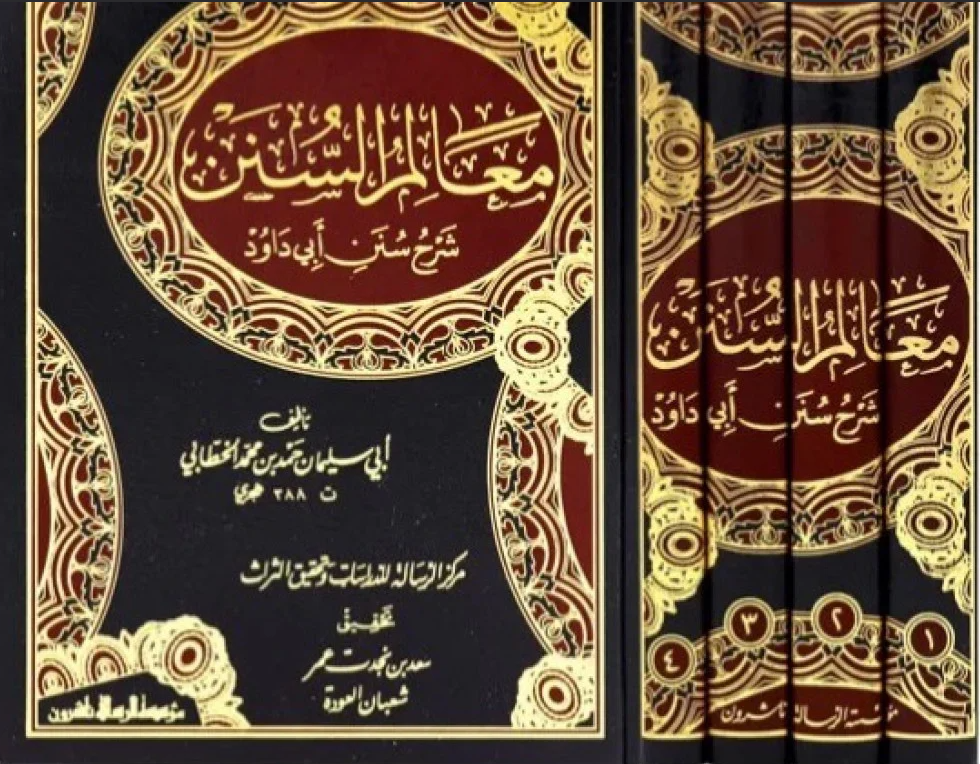 مَعَالِمُ السُّنَنِ
شَرْحُ سُنَنِ أَبِي دَاوُدْ
تأليف
أبي سليمان حَمْد بن محمّد الخطّابي
ت ٣٨٨ هجري
مركز الرسالة للدراسات وتحقيق التراث
تحقيق
سعد بن نجدت عمر
شعبان العودة
مؤسسة الرسالة ناشرون
مَعَالِمُ السُّنَنِ
شَرْحُ سُنَنِ أَبِي دَاوُدْ
١
٢
٣
٤
مؤسسة الرسالة ناشرون